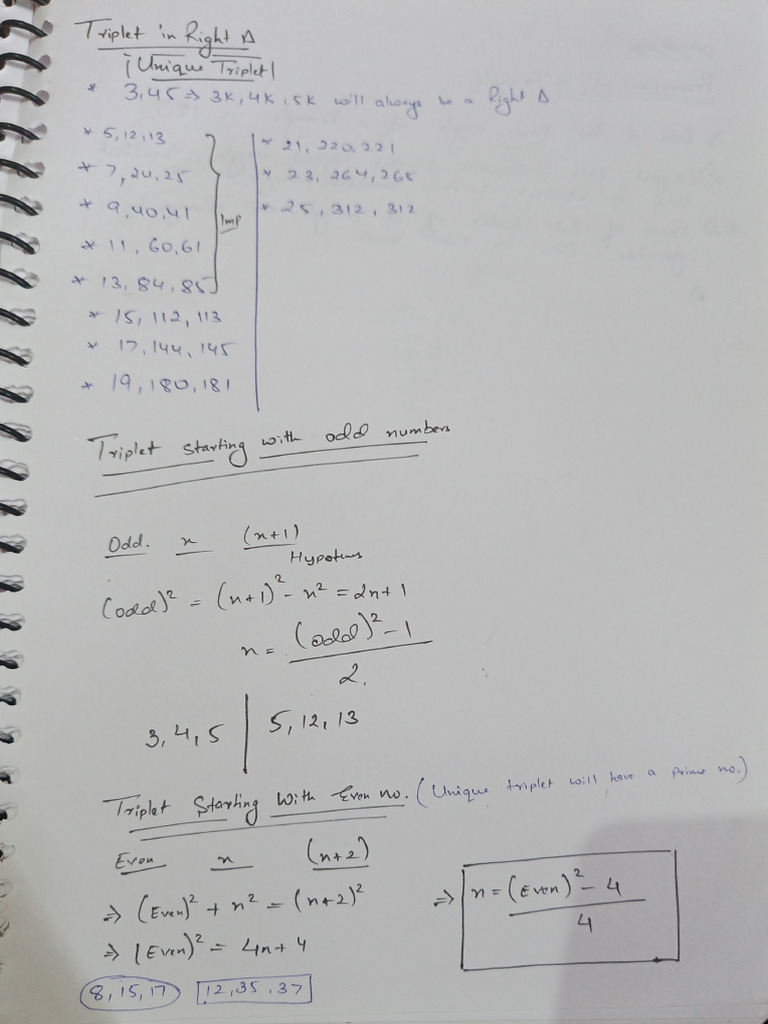 Triplet in Right Δ
|Unique Triplet|
* 3,4,5 ⇒ 3K, 4K, 5K will always be a Right Δ
* 5,12,13
* 7,24,25
* 9,40,41
* 11, 60,61
* 13, 84, 85
Imp
* 15, 112, 113
* 17, 144, 145
* 19, 180, 181
* 21, 220, 221
* 23, 264, 265
* 25, 312, 312
Triplet starting with odd numbers
Odd. n (n+1)
Hypotenus
(odd)² = (n+1)² - n² = 2n+1
n = (odd)² - 1
2.
3, 4, 5 | 5, 12, 13
Triplet Starting With Even no. (Unique triplet will have a prime no.)
Even n (n+2)
⇒ (Even)² + n² = (n+2)²
⇒ (Even)² = 4n+4
⇒ n = (Even)² - 4
4
8, 15, 17 12, 35, 37